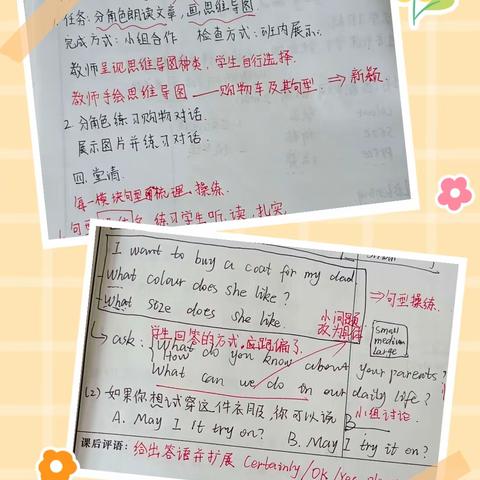 1. 任务: 分角色朗读文章, 画思维导图.
完成方式: 小组合作 检查方式: 班内展示.
教师呈现思维导图种类, 学生自行选择.
教师手绘思维导图 —— 购物车及其句型 ⇒ 新颖.
2. 分角色练习购物对话.
展示图片并练习对话.
四. 堂清.
每一模块句型的梳理、操练.
练习学生听、读, 扎实
I want to buy a coat for my dad.
-What colour does she like?
-What size does she like.
⇒句型操练.
小问题
改为
small
medium
large
学生回答的方式, 跑偏了.
ask: What do you know about your parents?
How
What can we do in our daily life?
(2) 如果你想试穿这件衣服, 你可以说 B
小组讨论.
A. May I It try on? B. May I try it on?
课后评语: 给出答语并扩展 Certainly/OK/Yes